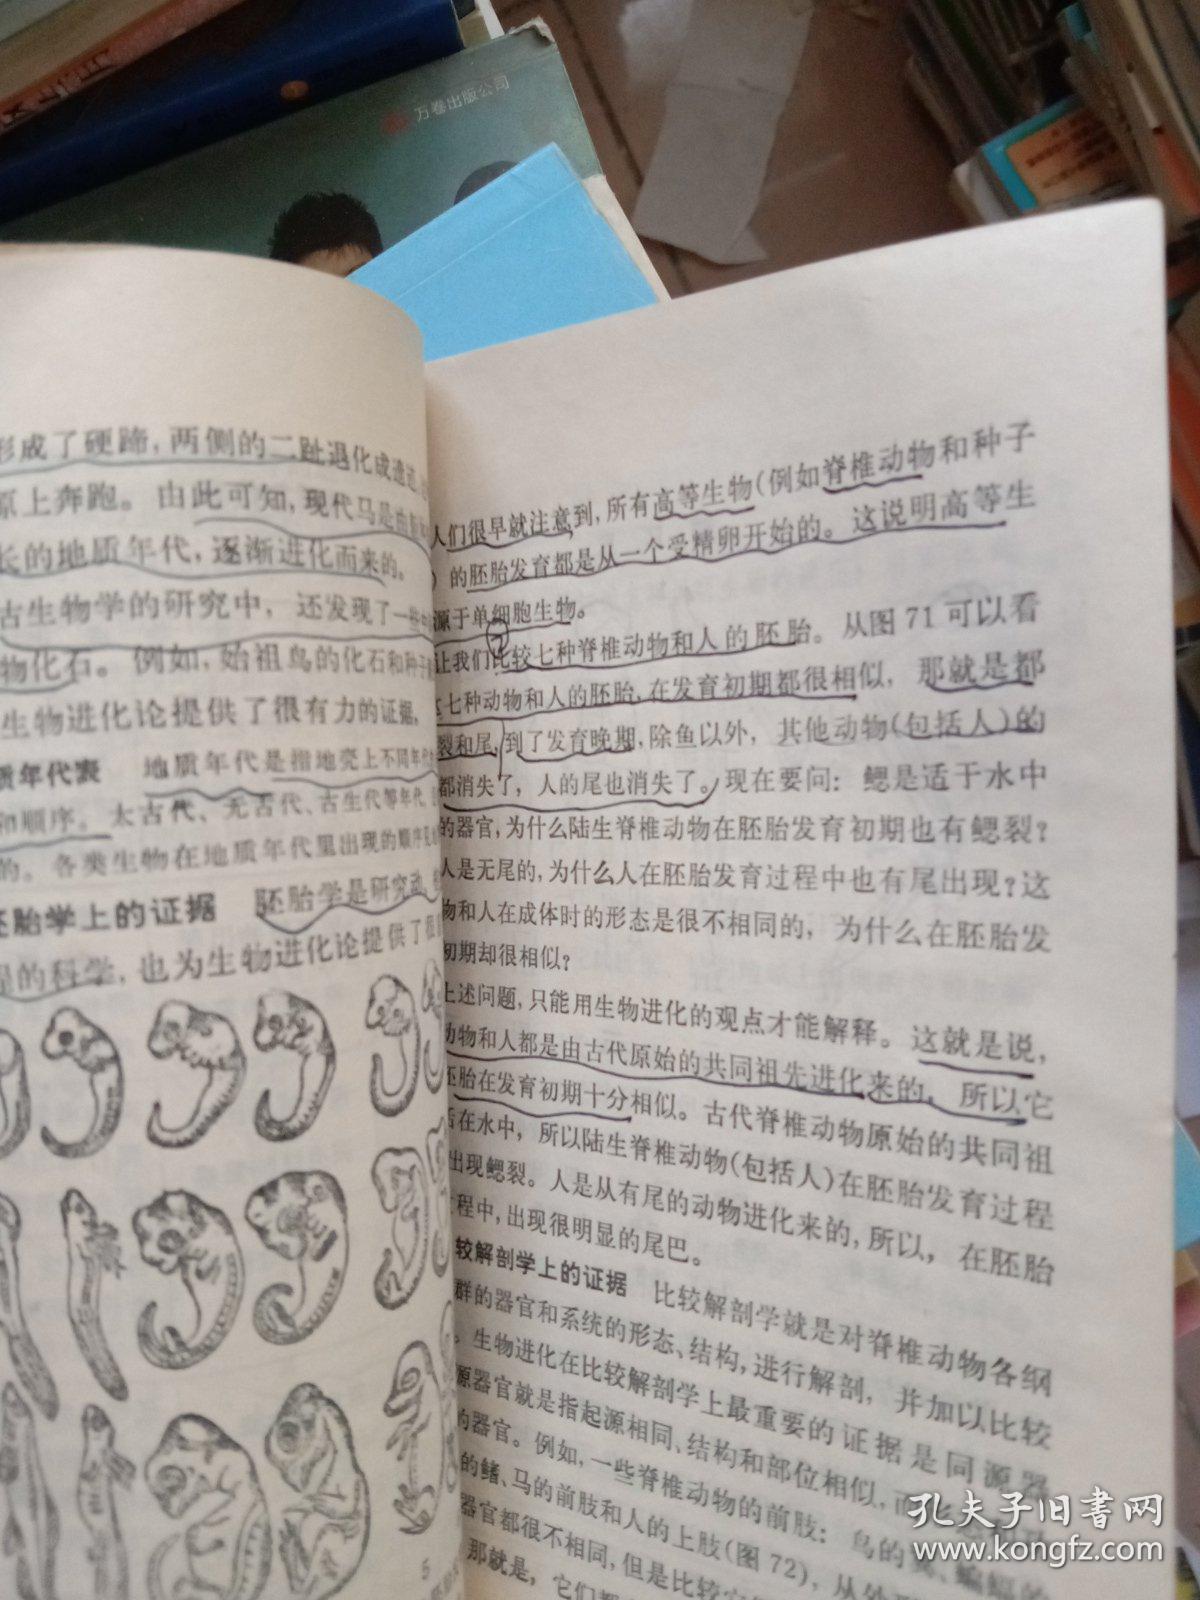 万卷出版公司
形成了硬蹄，两侧的二趾退化成遗迹
原上奔跑。由此可知，现代马是由
长的地质年代，逐渐进化而来的。
古生物学的研究中，还发现了一些
物化石。例如，始祖鸟的化石和种子
生物进化论提供了很有力的证据。
质年代表 地质年代是指地壳上不同年代
和顺序。太古代、元古代、古生代等年代，
的。各类生物在地质年代里出现的顺序
胚胎学上的证据 胚胎学是研究动
程的科学，也为生物进化论提供了很
5
人们很早就注意到，所有高等生物（例如脊椎动物和种子
）的胚胎发育都是从一个受精卵开始的。这说明高等生
源于单细胞生物。
②
让我们比较七种脊椎动物和人的胚胎。从图 71 可以看
这七种动物和人的胚胎，在发育初期都很相似，那就是都
裂和尾，到了发育晚期，除鱼以外，其他动物（包括人）的
都消失了，人的尾也消失了。现在要问：鳃是适于水中
的器官，为什么陆生脊椎动物在胚胎发育初期也有鳃裂？
人是无尾的，为什么人在胚胎发育过程中也有尾出现？这
物和人在成体时的形态是很不相同的，为什么在胚胎发
初期却很相似？
上述问题，只能用生物进化的观点才能解释。这就是说，
动物和人都是由古代原始的共同祖先进化来的，所以它
胚胎在发育初期十分相似。古代脊椎动物原始的共同祖
活在水中，所以陆生脊椎动物（包括人）在胚胎发育过程
出现鳃裂。人是从有尾的动物进化来的，所以，在胚胎
程中，出现很明显的尾巴。
较解剖学上的证据 比较解剖学就是对脊椎动物各纲
群的器官和系统的形态、结构，进行解剖，并加以比较
。生物进化在比较解剖学上最重要的证据是同源器
源器官就是指起源相同、结构和部位相似，而
的器官。例如，一些脊椎动物的前肢：鸟的翼、蝙蝠的
的鳍、马的前肢和人的上肢（图 72），从外形
器官都很不相同，但是比较它
那就是，它们都
孔夫子旧书网
www.kongfz.com